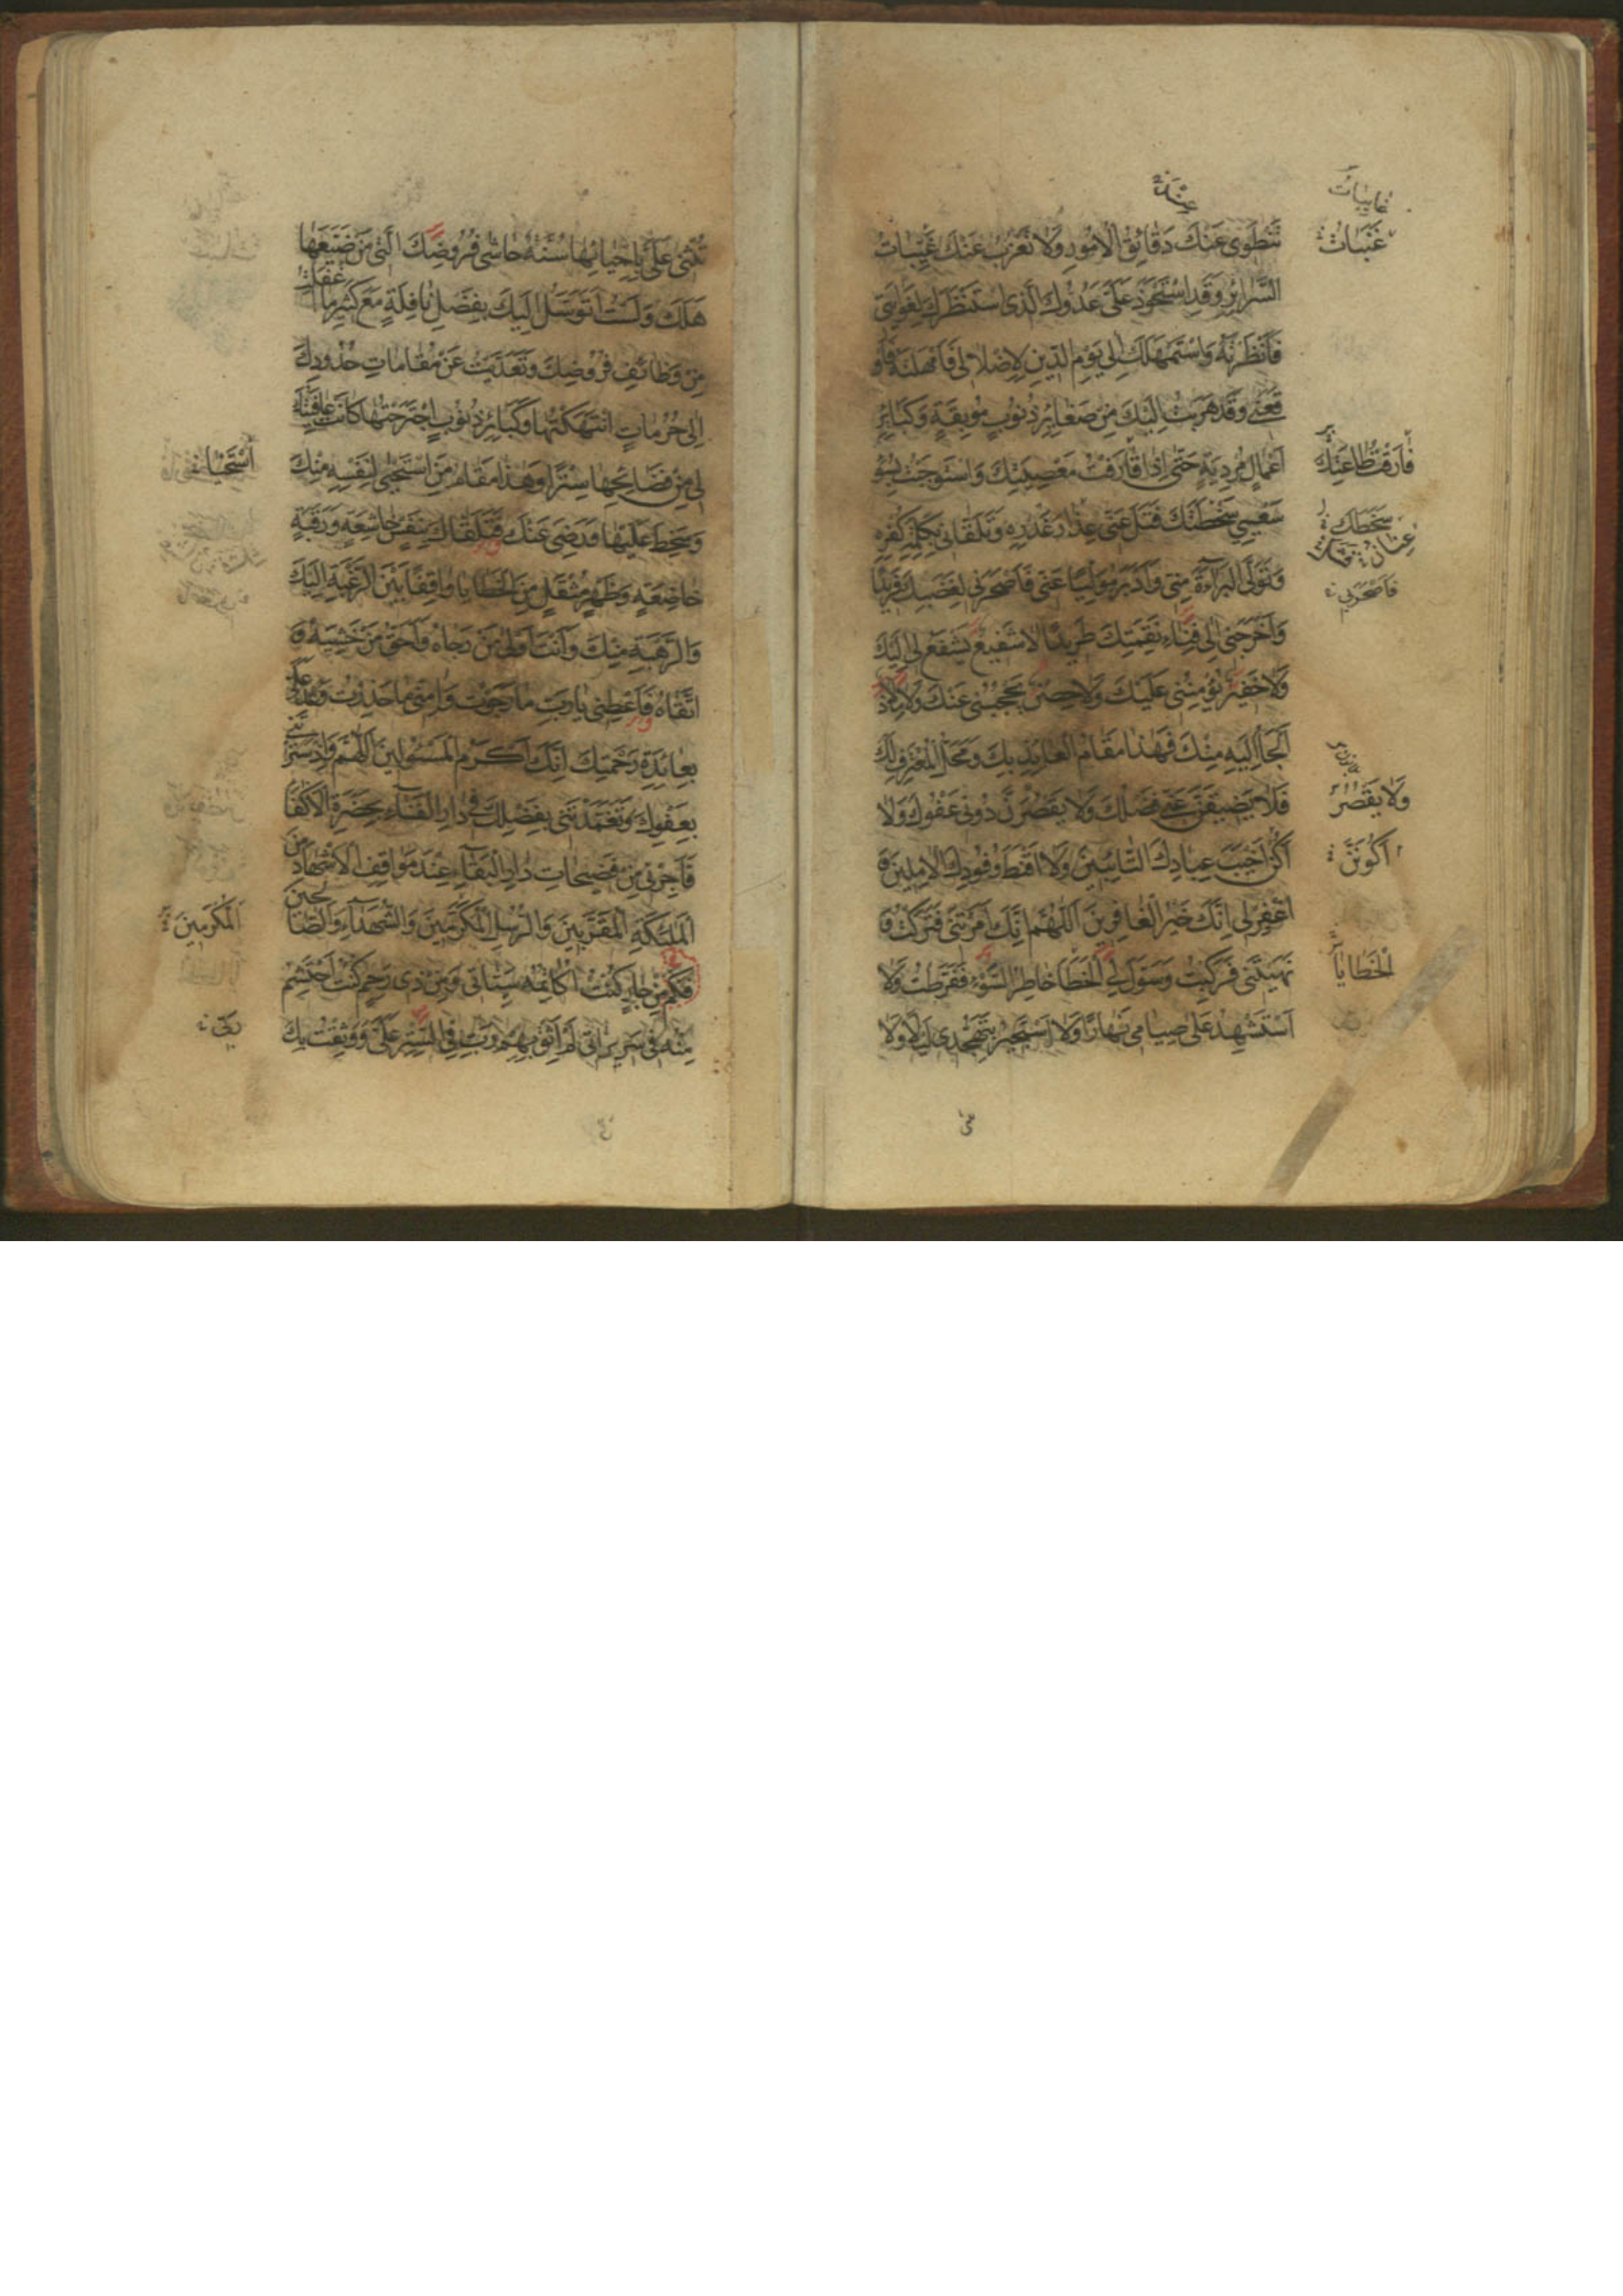 تَنْطَوِى عَنْكَ دَقَائِقُ الْاُمُورِ وَلَا تَعْزُبُ عَنْكَ غَيِّبَاتُ
السَّرَايِرِ وَقَدِ اسْتَحْوَذَ عَلَىَّ عَدُوُّكَ الَّذِى اسْتَنْظَرَكَ لِغَوَايَتِى
فَاَنْظَرْتَهُ وَاسْتَمْهَلَكَ اِلىٰ يَوْمِ الدِّينِ لِاِضْلَالِى فَاَمْهَلْتَهُ فَاَوْ
قَعَنِى وَقَدْ هَرَبْتُ اِلَيْكَ مِنْ صَغَايِرِ ذُنُوبٍ مُوبِقَةٍ وَكَبَايِرِ
اَعْمَالٍ مُرْدِيَةٍ حَتّىٰ اِذَا قَارَفْتُ مَعْصِيَتَكَ وَاسْتَوْجَبْتُ بِسُوْءِ
سَعْيِي سَخْطَتَكَ فَتَلَ عَنِّى عِذَارَ غَدْرِهِ وَتَلَقَّانِى بِكَلِمَةِ كُفْرِهِ
وَتَوَلَّى الْبَرَاءَةَ مِنِّى وَاَدْبَرَ مُوَلِّيًا عَنِّى فَاَصْحَرَنِى لِغَضَبِكَ فَرِيدًا
وَاَخْرَجَنِى اِلىٰ فِنَاءِ نَقِمَتِكَ طَرِيدًا لَا شَفِيعٌ يَشْفَعُ لِى اِلَيْكَ
وَلَا خَفِيرٌ يُؤْمِنُنِى عَلَيْكَ وَلَا حِصْنٌ يَحْجُبُنِى عَنْكَ وَلَا مَلَاذٌ
اَلْجَأُ اِلَيْهِ مِنْكَ فَهٰذَا مَقَامُ الْعَايِذِ بِكَ وَمَحَلُّ الْمُعْتَرِفِ لَكَ
فَلَا يَضِيقَنَّ عَنِّى فَضْلُكَ وَلَا يَقْصُرَنَّ دُونِى عَفْوُكَ وَلَا
اَكُنْ اَخْيَبَ عِبَادِكَ التَّائِبِينَ وَلَا اَقْنَطَ وُفُودِكَ الْاٰمِلِينَ وَ
اغْفِرْ لِى اِنَّكَ خَيْرُ الْغَافِرِينَ اَللّٰهُمَّ اِنَّكَ اَمَرْتَنِى فَتَرَكْتُ وَ
نَهَيْتَنِى فَرَكِبْتُ وَسَوَّلَ لِىَ الْخَطَأَ خَاطِرُ السُّوْءِ فَفَرَّطْتُ وَلَا
اَسْتَشْهِدُ عَلىٰ صِيَامِى نَهَارًا وَلَا اَسْتَجِيرُ بِتَهَجُّدِى لَيْلًا وَلَا
عِنْدَ
غَايِبَاتُ
غَيَبَاتُ
فَارَقْتُ طَاعَتَكَ
سَخَطَكَ
فَاَصْحَرَنِى
وَلَا يَقْصُرْ
اَكُونَنَّ
الْخَطَايَا
تُثْنِى عَلَىَّ بِاِحْيَائِهَا سُنَّةٌ حَاشَى فُرُوضِكَ الَّتِى مَنْ ضَيَّعَهَا
هَلَكَ وَلَسْتُ اَتَوَسَّلُ اِلَيْكَ بِفَضْلِ نَافِلَةٍ مَعَ كَثِيرِ مَا اَغْفَلْتُ
مِنْ وَظَائِفِ فُرُوضِكَ وَتَعَدَّيْتُ عَنْ مَقَامَاتِ حُدُودِكَ
اِلىٰ حُرُمَاتٍ انْتَهَكْتُهَا وَكَبَائِرِ ذُنُوبٍ اجْتَرَحْتُهَا كَانَتْ عَافِيَتُكَ
لِى مِنْ فَضَائِحِهَا سِتْرًا وَهٰذَا مَقَامُ مَنِ اسْتَحْيىٰ لِنَفْسِهِ مِنْكَ
وَسَخِطَ عَلَيْهَا وَرَضِىَ عَنْكَ فَتَلَقَّاكَ بِنَفْسٍ خَاشِعَةٍ وَرَقَبَةٍ
خَاضِعَةٍ وَظَهْرٍ مُثْقَلٍ مِنَ الْخَطَايَا وَاقِفًا بَيْنَ الرَّغْبَةِ اِلَيْكَ
وَالرَّهْبَةِ مِنْكَ وَاَنْتَ اَوْلىٰ مَنْ رَجَاهُ وَاَحَقُّ مَنْ خَشِيَهُ وَ
اتَّقَاهُ فَاَعْطِنِى يَا رَبِّ مَا رَجَوْتُ وَاٰمِنِّى مَا حَذِرْتُ وَعُدْ عَلَىَّ
بِعَائِدَةِ رَحْمَتِكَ اِنَّكَ اَكْرَمُ الْمَسْئُولِينَ اَللّٰهُمَّ وَاِذْ سَتَرْتَنِى
بِعَفْوِكَ وَتَغَمَّدْتَنِى بِفَضْلِكَ فِى دَارِ الْفَنَاءِ بِحَضْرَةِ الْاَكْفَاءِ
فَاَجِرْنِى مِنْ فَضِيحَاتِ دَارِ الْبَقَاءِ عِنْدَ مَوَاقِفِ الْاَشْهَادِ مِنَ
الْمَلٰئِكَةِ الْمُقَرَّبِينَ وَالرُّسُلِ الْمُكَرَّمِينَ وَالشُّهَدَاءِ وَالصَّالِحِينَ
فَكَمْ مِنْ جَارٍ كُنْتُ اُكَاتِمُهُ سَيِّئَاتِى وَمِنْ ذِى رَحِمٍ كُنْتُ اَحْتَشِمُ
مِنْهُ فِى سَرِيرَاتِى لَمْ اَثِقْ بِهِمْ رَبِّ فِى السِّتْرِ عَلَىَّ وَوَثِقْتُ بِكَ
الْمُكْرَمِينَ
رَبِّى